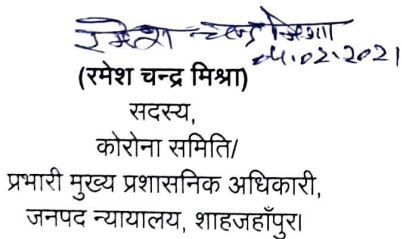 रमेश चन्द्र मिश्रा
04.02.2021
(रमेश चन्द्र मिश्रा)
सदस्य,
कोरोना समिति/
प्रभारी मुख्य प्रशासनिक अधिकारी,
जनपद न्यायालय, शाहजहाँपुर।